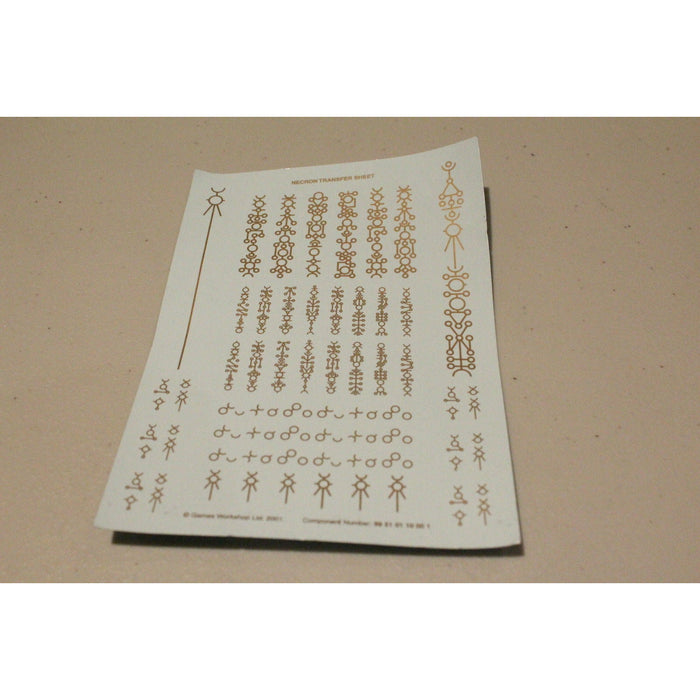 NECRON TRANSFER SHEET
© Games Workshop Ltd. 2001. Component Number: